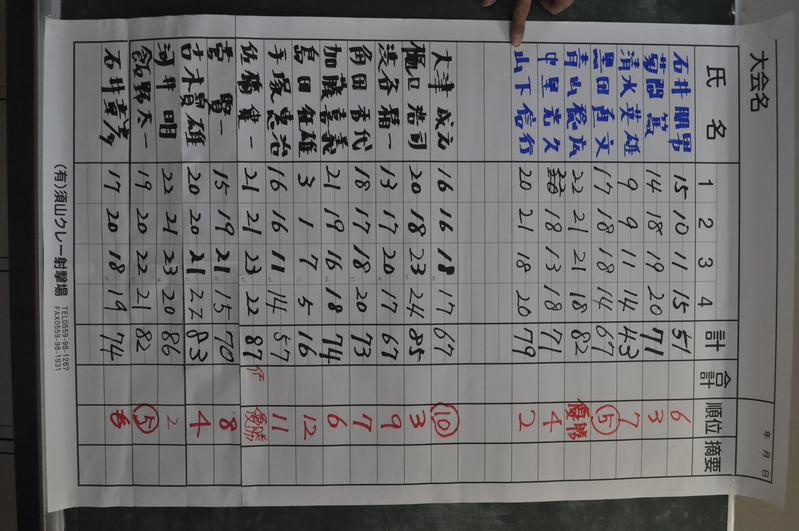 大会名
年 月 日
氏名 1 2 3 4 計 合計 順位 摘要
石井 朋男 15 10 11 15 51 6
菊間 篤 14 18 19 20 71 3
清水 英雄 9 9 11 14 43 7
黒田 直文 17 18 18 14 67 ⑤
青山 稔広 22 21 21 18 82 優勝
中里 光久 18 13 18 71 4
山下 信行 20 21 18 20 79 2
大津 成方 16 16 18 17 67 ⑩
樋口 浩司 20 18 23 24 85 3
渋谷 精一 13 17 20 17 67 9
角田 香代 18 17 18 20 73 7
加藤 喜義 21 19 16 18 74 6
島田 征雄 3 1 7 5 16 12
手塚 忠治 16 16 11 14 57 11
佐藤 寛一 21 21 23 22 87 優勝
菅 賢一 15 19 21 15 70 8
古木 貫雄 20 20 21 22 83 4
河井 明 22 21 23 20 86 2
飯野 太一 19 20 22 21 82 ⑤
石井 17 20 18 19 74
(有)須山クレー射撃場 TEL0559-98-1267
FAX0559-98-1931